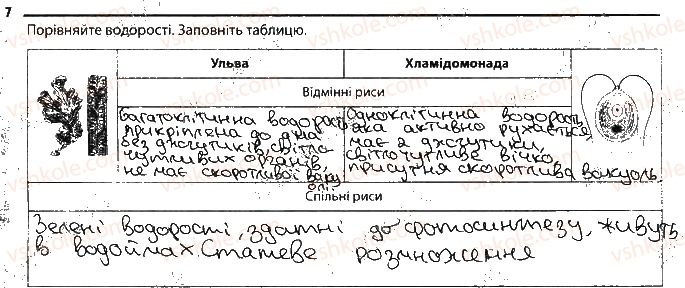 7
Порівняйте водорості. Заповніть таблицю.
Ульва
Хламідомонада
Відмінні риси
Багатоклітинна водорость
прикріплена до дна
без джгутиків, світло
чутливих органів,
не має скоротливої ваку
олі
Одноклітинна водорость,
яка активно рухається,
має 2 джгутики,
світлочутливе вічко,
присутня скоротлива вакуоль.
Спільні риси
Зелені водорості, здатні до фотосинтезу, живуть
в водоймах Статеве розмноження